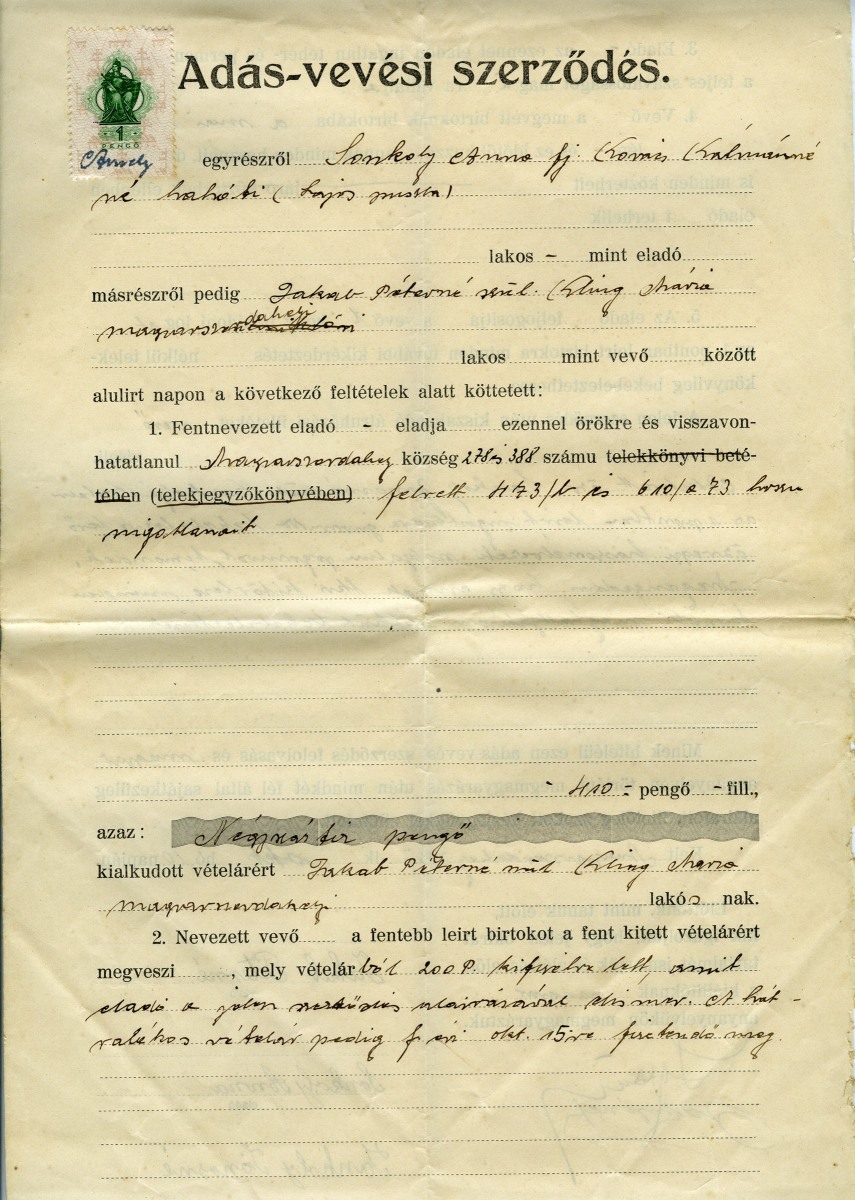 1
PENGŐ
Adás-vevési szerződés.
egyrészről Sonkoly Anna fj. Kovács Kálmánné
né hahóti (Lajos puszta)
lakos - mint eladó
másrészről pedig Jakab Péterné szül. Kling Mária
magyarszerdahelyi
lakos mint vevő között
alulirt napon a következő feltételek alatt köttetett:
1. Fentnevezett eladó - eladja ezennel örökre és visszavon-
hatatlanul Magyarszerdahely község 278 és 388 számu telekkönyvi beté-
tében (telekjegyzőkönyvében) felvett 473/b és 610/a 73 hrszu
ingatlanait
- 410 - pengő - fill.,
azaz: Négyszáztiz pengő
kialkudott vételárért Jakab Péterné szül Kling Mária
magyarszerdahelyi lakós nak.
2. Nevezett vevő a fentebb leirt birtokot a fent kitett vételárért
megveszi , mely vételárból 200 P. kifizetve lett, amit
eladó a jelen szerződés aláirásával elismer. A hát-
ralékos vételár pedig f. évi okt. 15-re fizetendő meg.